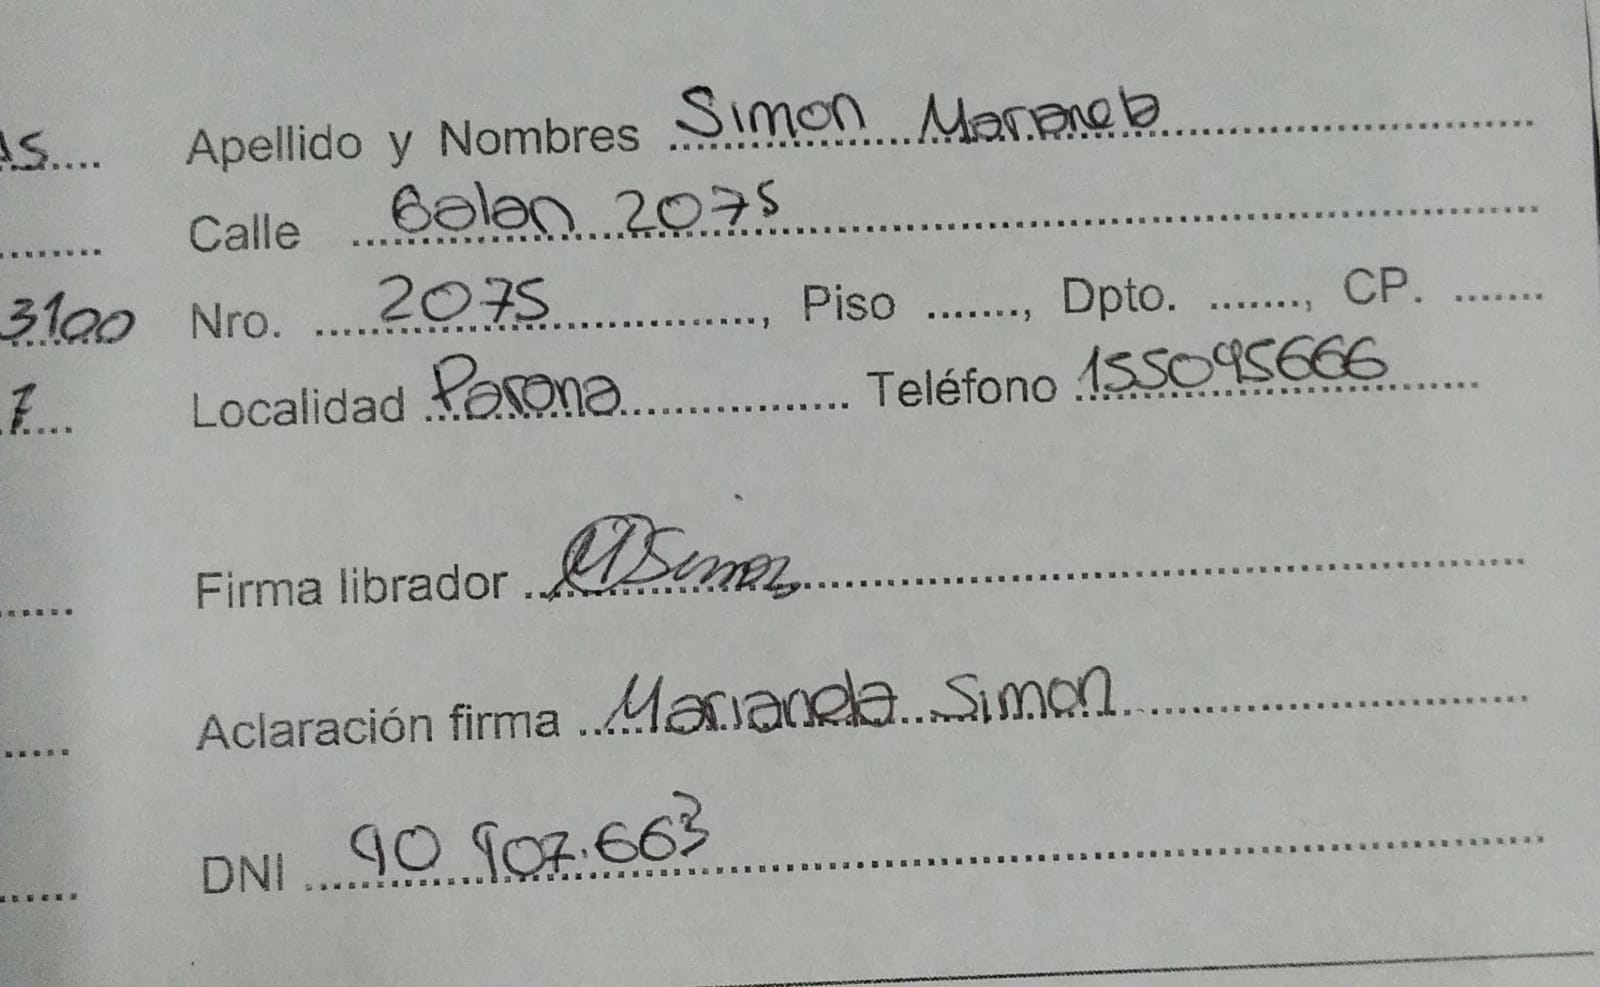 AS.... Apellido y Nombres Simon Marianela
........ Calle Galan 2075
3100 Nro. 2075, Piso ......., Dpto. ......., CP. .......
7.... Localidad Parana Teléfono 155095666
Firma librador MSimon
Aclaración firma Marianela Simon
DNI 90 907.663